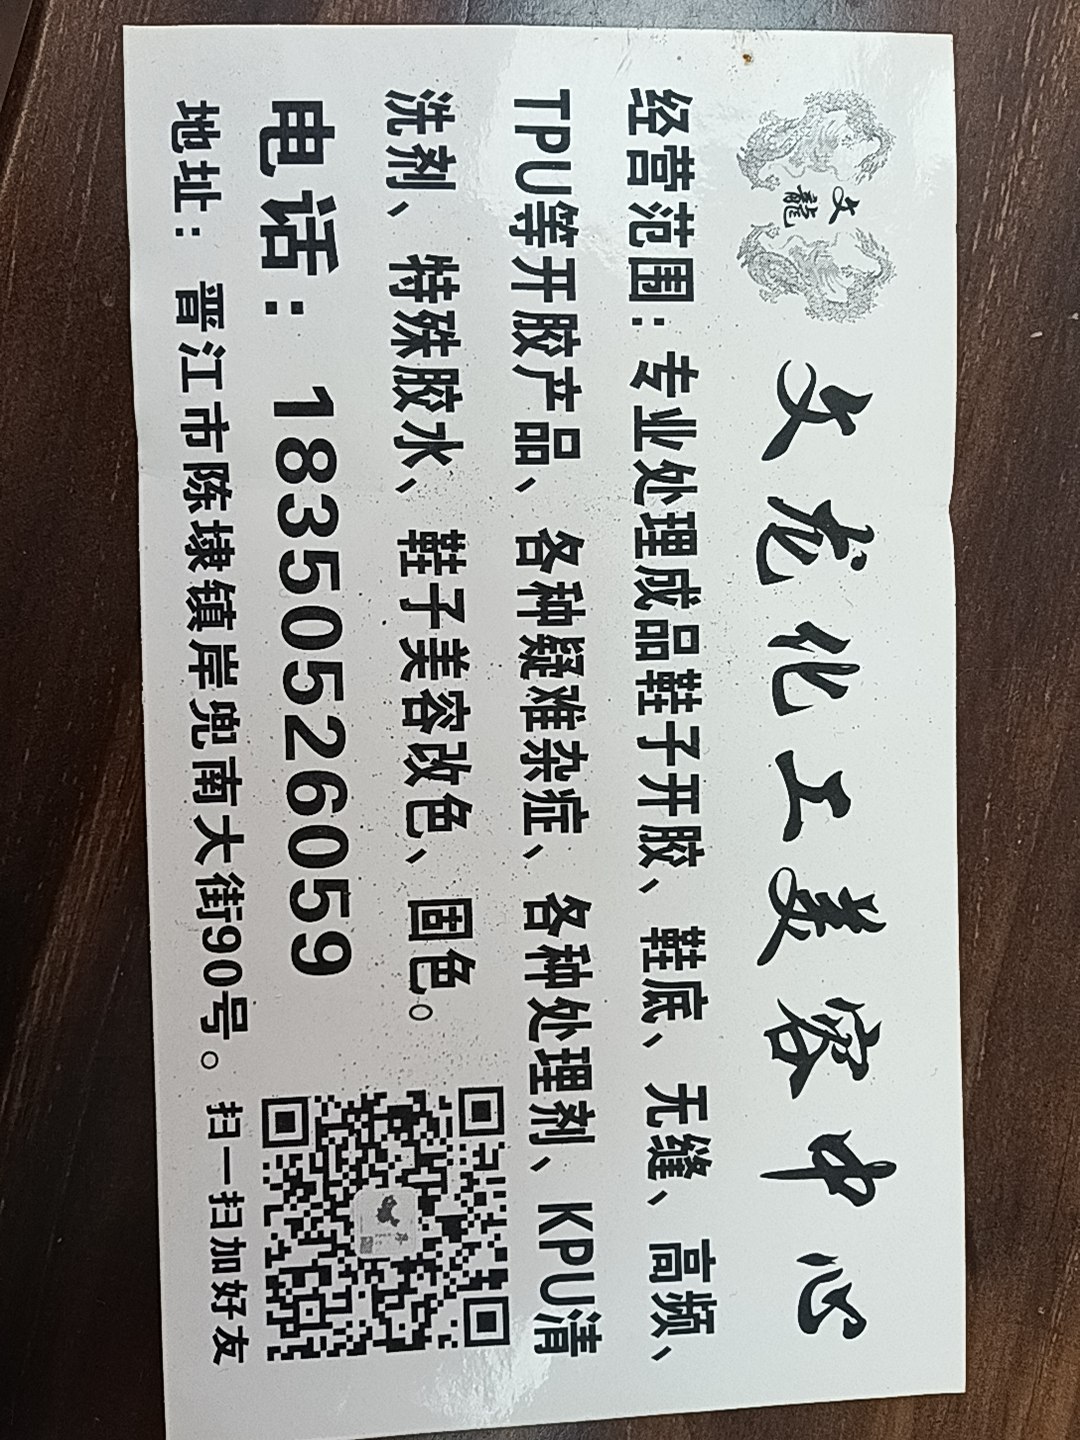 文龍
文龙化工美容中心
经营范围：专业处理成品鞋子开胶、鞋底、无缝、高频、
TPU等开胶产品、各种疑难杂症、各种处理剂、KPU清
洗剂、特殊胶水、鞋子美容改色、固色。
电话：18350526059
地址：晋江市陈埭镇岸兜南大街90号。扫一扫加好友